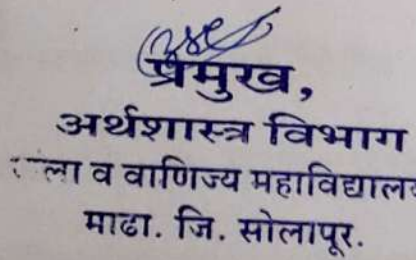 प्रमुख,
अर्थशास्त्र विभाग
कला व वाणिज्य महाविद्यालय
माढा. जि. सोलापूर.